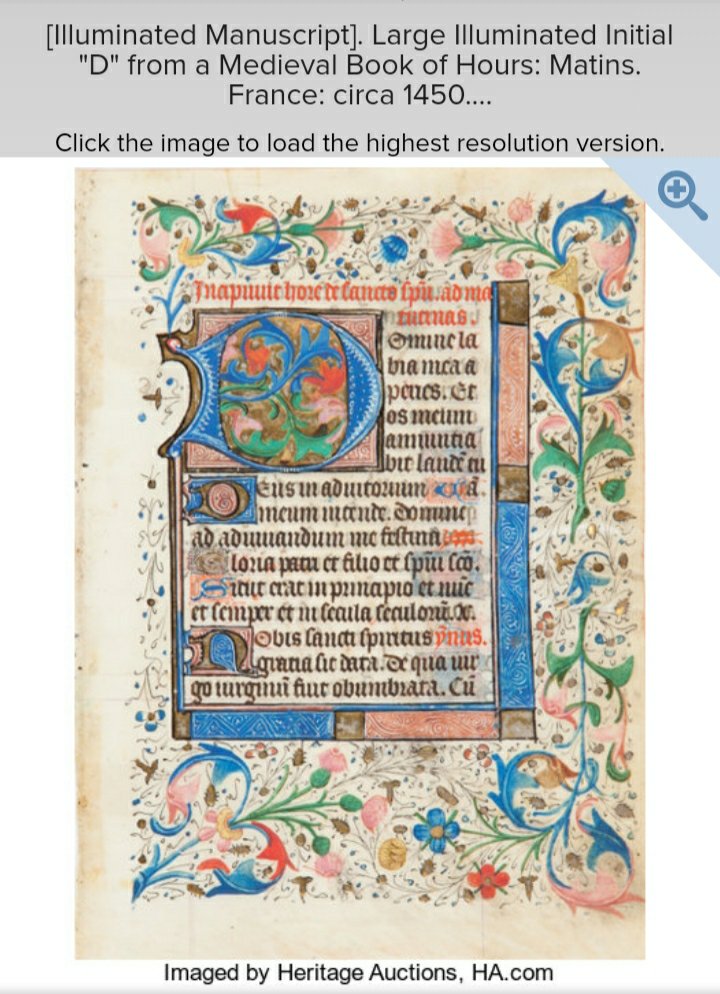 [Illuminated Manuscript]. Large Illuminated Initial
"D" from a Medieval Book of Hours: Matins.
France: circa 1450....
Click the image to load the highest resolution version.
Incipiunt hore de sancto spũ. ad ma
tutinas.
Domine la
bia mea a
peries. Et
os meum
annuntia
bit laudẽ tu
Deus in adiutorium ã.
meum intende. Domine
ad adiuuandum me festina
Gloria patri et filio et spũi sc̃o.
Sicut erat in principio et nũc
et semper et in secula seculorũ.
Nobis sancti spiritus ỹnus.
gratia sit data. De qua uir
go uirginũ fuit obumbrata. Cũ
Imaged by Heritage Auctions, HA.com